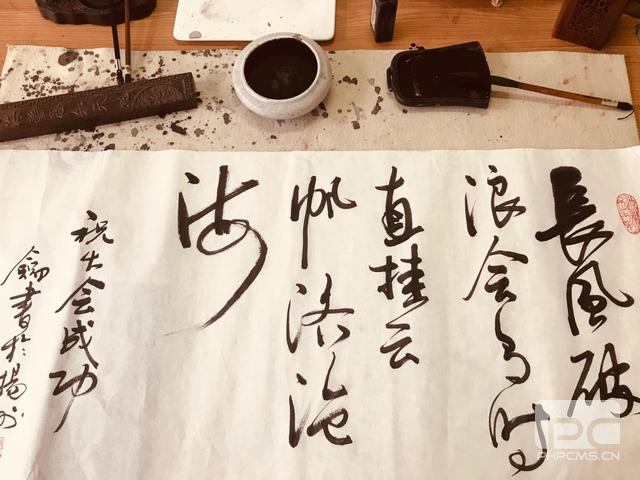 長風破
浪会有时
直挂云
帆济沧
海
祝大会成功
書於揚州
PHPCMS.CN